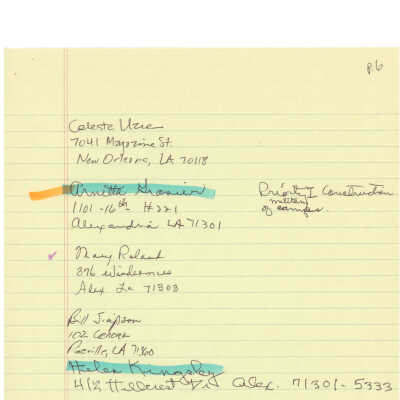 p. 6
Celeste Uzee
7041 Magazine St.
New Orleans, LA 70118
Arnetta
1101 - 16th #221
Alexandria LA 71301
Priority I Construction
military
of camps.
Mary Roland
376 Windermere
Alex La 71303
Bill Simpson
102
Pineville, LA 71360
Helen Kingsley
412 Hillcrest Dr. Alex. 71301-5333